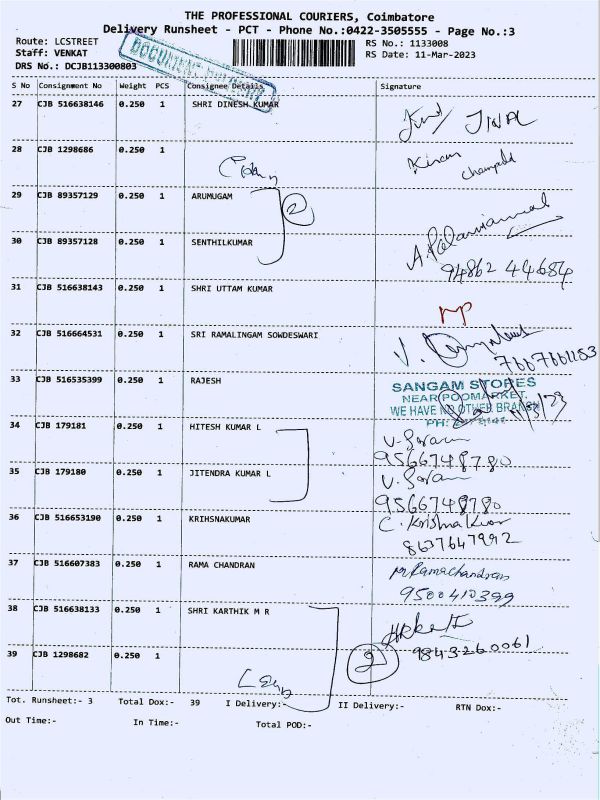 THE PROFESSIONAL COURIERS, Coimbatore
Delivery Runsheet - PCT - Phone No.:0422-3505555 - Page No.:3
Route: LCSTREET
Staff: VENKAT
DRS No.: DCJB113300803
RS No.: 1133008
RS Date: 11-Mar-2023
S No Consignment No Weight PCS Consignee Details Signature
27 CJB 516638146 0.250 1 SHRI DINESH KUMAR
28 CJB 1298686 0.250 1 Kiran
29 CJB 89357129 0.250 1 ARUMUGAM 2
30 CJB 89357128 0.250 1 SENTHILKUMAR
94862 44684
31 CJB 516638143 0.250 1 SHRI UTTAM KUMAR
32 CJB 516664531 0.250 1 SRI RAMALINGAM SOWDESWARI
33 CJB 516535399 0.250 1 RAJESH
SANGAM STORES
NEAR POOMARKET.
WE HAVE NO OTHER BRANCH
34 CJB 179181 0.250 1 HITESH KUMAR L
9566748780
35 CJB 179180 0.250 1 JITENDRA KUMAR L
9566748780
36 CJB 516653190 0.250 1 KRIHSNAKUMAR
8637647992
37 CJB 516607383 0.250 1 RAMA CHANDRAN
Ramachandran
9500410399
38 CJB 516638133 0.250 1 SHRI KARTHIK M R
39 CJB 1298682 0.250 1 2 9843260061
Tot. Runsheet:- 3 Total Dox:- 39 I Delivery:- II Delivery:- RTN Dox:-
Out Time:- In Time:- Total POD:-